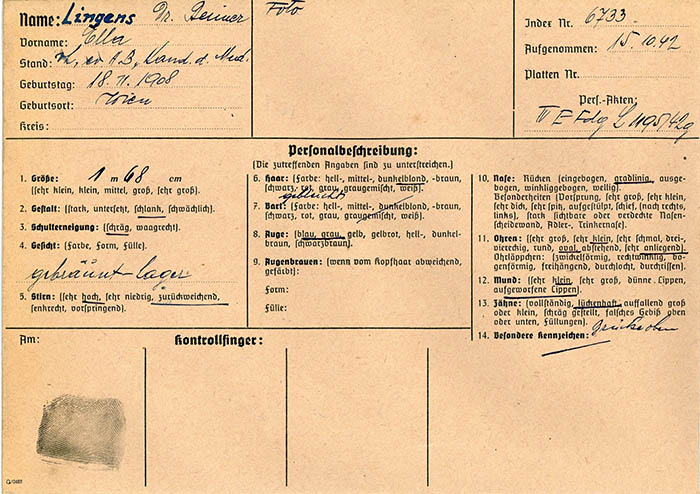 Name: Lingens Dr. Reiner
Vorname: Ella
Stand: Kand. d. Med.
Geburtstag: 18.11.1908
Geburtsort: Wien
Kreis:
Foto
Index Nr. 6733
Aufgenommen: 15.10.42
Platten Nr.
Pers.-Akten:
1195/42g
Personalbeschreibung:
(Die zutreffenden Angaben sind zu unterstreichen.)
1. Größe: 1 m 68 cm
(sehr klein, klein, mittel, groß, sehr groß).
2. Gestalt: (stark, untersetzt, schlank, schwächlich).
3. Schulterneigung: (schräg, waagrecht).
4. Gesicht: (Farbe, Form, Fülle).
gebräunt-lager
5. Stirn: (sehr hoch, sehr niedrig, zurückweichend,
senkrecht, vorspringend).
6. Haar: (Farbe: hell-, mittel-, dunkelblond, -braun,
schwarz, rot, grau, graugemischt, weiß).
gebleicht
7. Bart: (Farbe: hell-, mittel-, dunkelblond, -braun,
schwarz, rot, grau, graugemischt, weiß).
8. Auge: (blau, grau, gelb, gelbrot, hell-, dunkel-
braun, schwarzbraun).
9. Augenbrauen: (wenn vom Kopfhaar abweichend,
gefärbt):
Form:
Fülle:
10. Nase: Rücken (eingebogen, gradlinig, ausge-
bogen, winkliggebogen, wellig).
Besonderheiten (Vorsprung, sehr groß, sehr klein,
sehr dick, sehr spitz, aufgestülpt, schief, (nach rechts,
links), stark sichtbare oder verdeckte Nasen-
scheidewand, Adler-, Trinkernase).
11. Ohren: (sehr groß, sehr klein, sehr schmal, drei-
viereckig, rund, oval, abstehend, sehr anliegend).
Ohrläppchen: (zwickelförmig, rechtwinklig, bo-
genförmig, freihängend, durchlocht, durchrissen).
12. Mund: (sehr klein, sehr groß, dünne Lippen,
aufgeworfene Lippen).
13. Zähne: (vollständig, lückenhaft, auffallend groß
oder klein, schräg gestellt, falsches Gebiß oben
oder unten, Füllungen).
14. Besondere Kennzeichen:
Am:
Kontrollfinger: